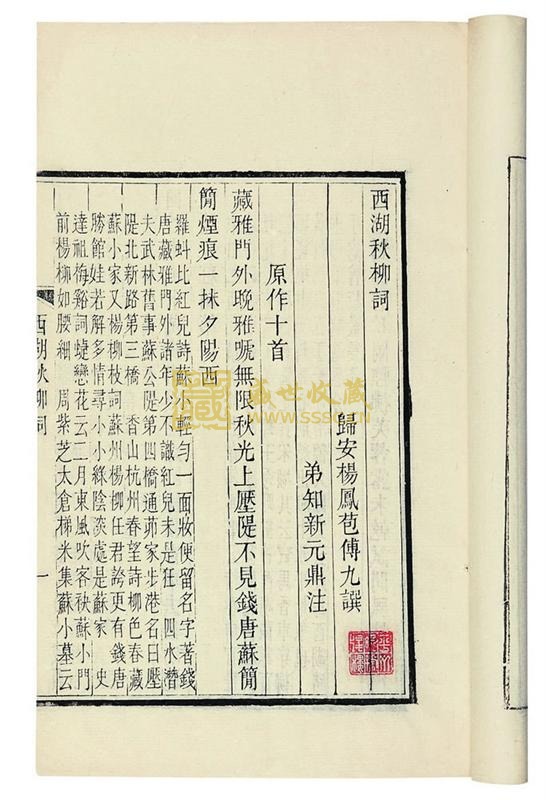 西湖秋柳詞
歸安楊鳳苞傅九譔
弟知新元鼎注
原作十首
藏雅門外晚雅嗁無限秋光上壓隄不見錢唐蘇簡
簡煙痕一抹夕陽西
羅虬比紅兒詩蘇小輕勻一面妝便留名字著錢
唐藏雅門外諸年少不識紅兒未是狂 四水潛
夫武林舊事蘇公隄第四橋通茆家步港名曰壓
隄北新路第三橋 香山杭州春望詩柳色春藏
蘇小家又楊柳枝詞蘇州楊柳任君誇更有錢唐
勝館娃若解多情尋小小綠陰深處是蘇家 史
達祖梅谿詞蝶戀花云二月東風吹客袂蘇小門
前楊柳如腰細 周紫芝太倉稊米集蘇小墓云
西湖秋柳詞 一
盛世收藏
www.sssc.cn